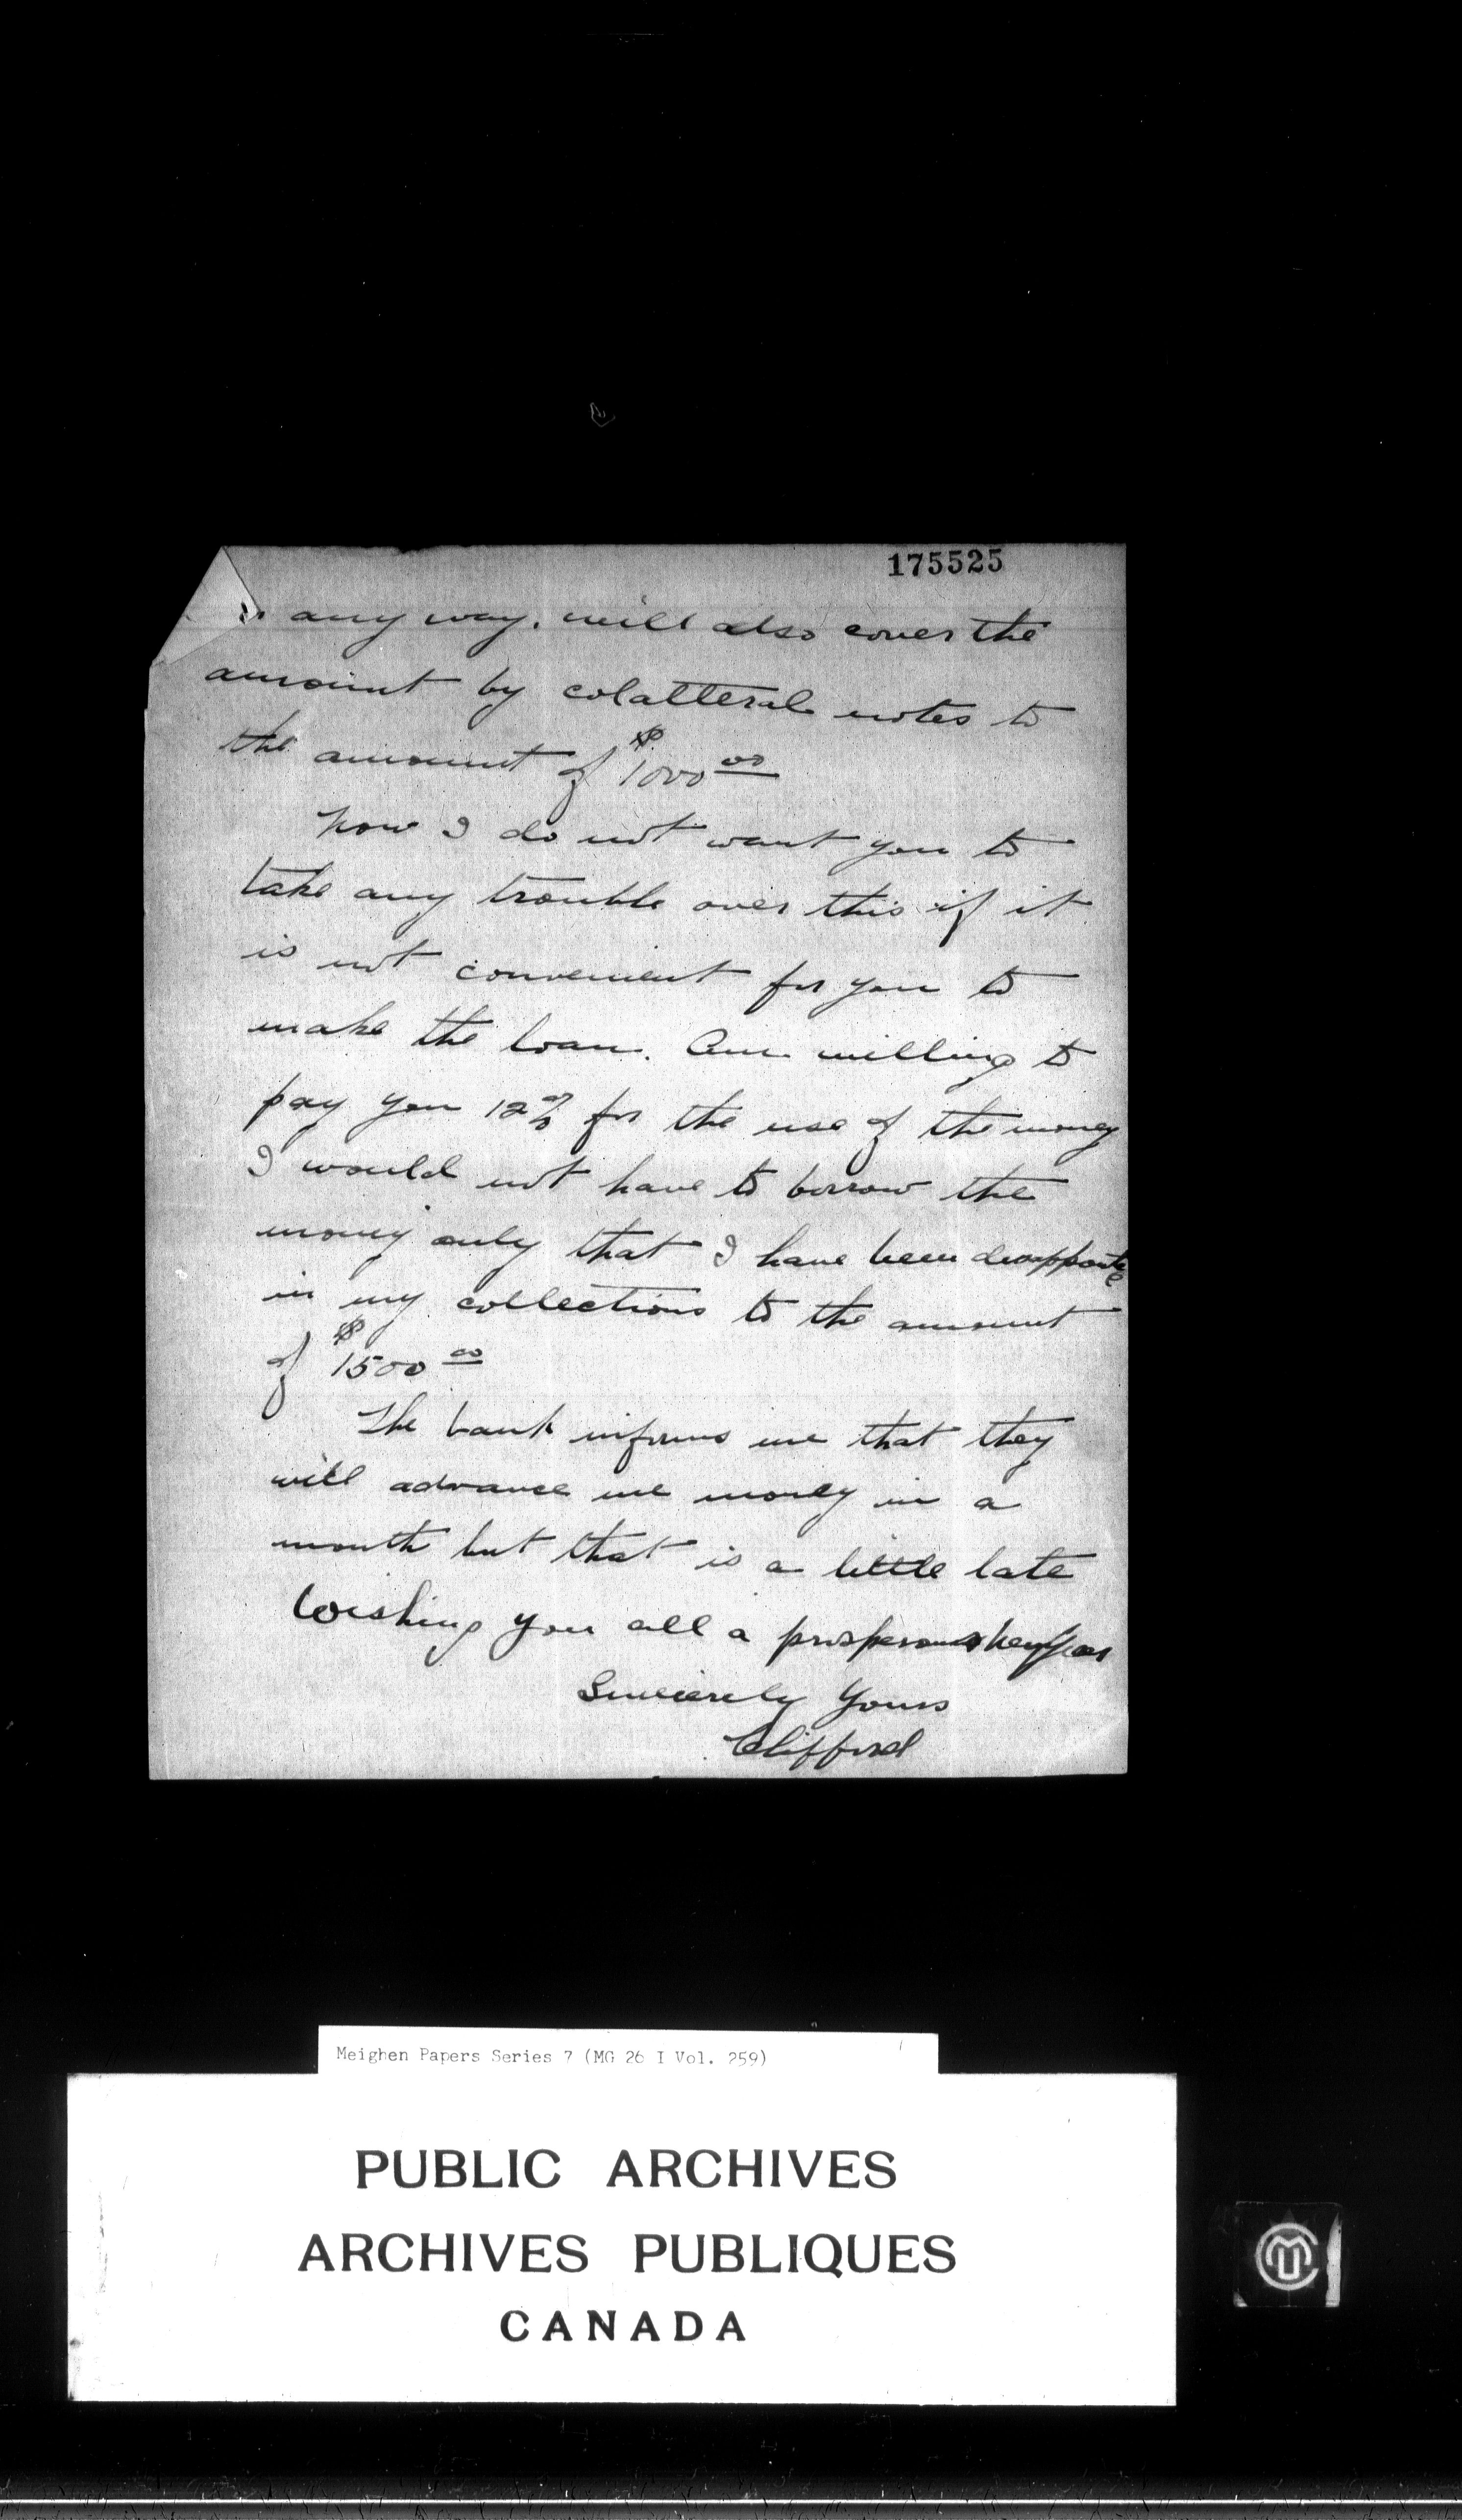 175525
in any way. will also cover the
amount by colatteral notes to
the amount of $1000 00
Now I do not want you to
take any trouble over this if it
is not convenient for you to
make the loan. Am willing to
pay you 12% for the use of the money
I would not have to borrow the
money only that I have been
in my collections to the amount
of $1500 00
The bank informs me that they
will advance me money in a
month but that is a little late
Wishing you all a prosperous New Year
Sincerely Yours
Clifford
Meighen Papers Series 7 (MG 26 I Vol. 259)
PUBLIC ARCHIVES
ARCHIVES PUBLIQUES
CANADA